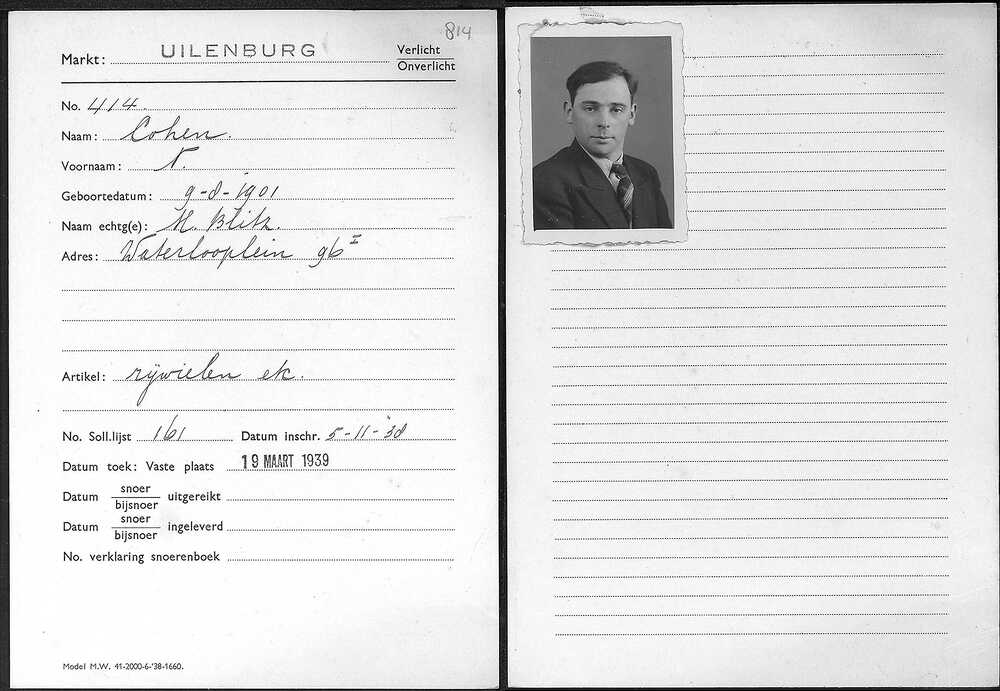 814
Markt: UILENBURG Verlicht
Onverlicht
No. 414.
Naam: Cohen.
Voornaam: N.
Geboortedatum: 9-8-1901
Naam echtg(e): M. Blitz.
Adres: Waterlooplein 96 I
Artikel: rijwielen etc.
No. Soll.lijst 161 Datum inschr. 5-11-38
Datum toek: Vaste plaats 19 MAART 1939
Datum snoer
bijsnoer uitgereikt
Datum snoer
bijsnoer ingeleverd
No. verklaring snoerenboek
Model M.W. 41-2000-6-'38-1660.